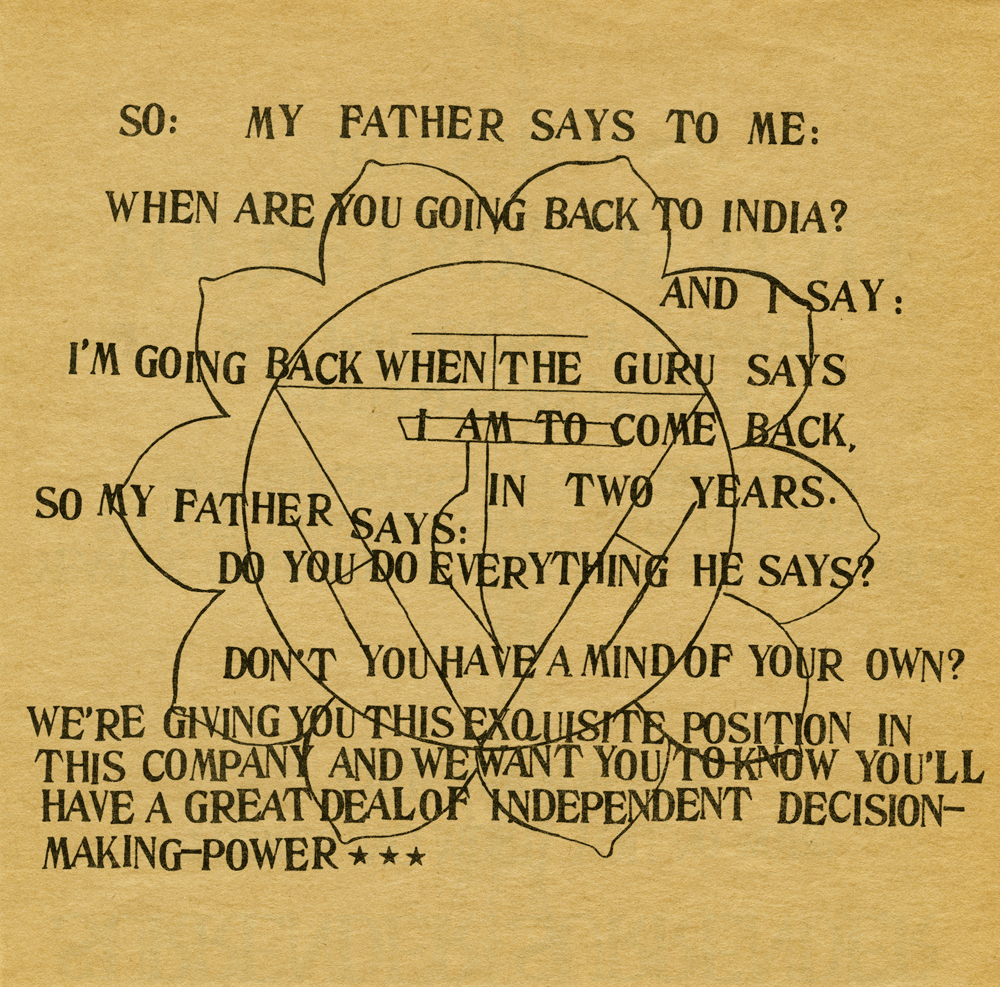 SO: MY FATHER SAYS TO ME:
WHEN ARE YOU GOING BACK TO INDIA?
AND I SAY:
I'M GOING BACK WHEN THE GURU SAYS
I AM TO COME BACK,
IN TWO YEARS.
SO MY FATHER SAYS:
DO YOU DO EVERYTHING HE SAYS?
DON'T YOU HAVE A MIND OF YOUR OWN?
WE'RE GIVING YOU THIS EXQUISITE POSITION IN
THIS COMPANY AND WE WANT YOU TO KNOW YOU'LL
HAVE A GREAT DEAL OF INDEPENDENT DECISION-
MAKING-POWER ★★★